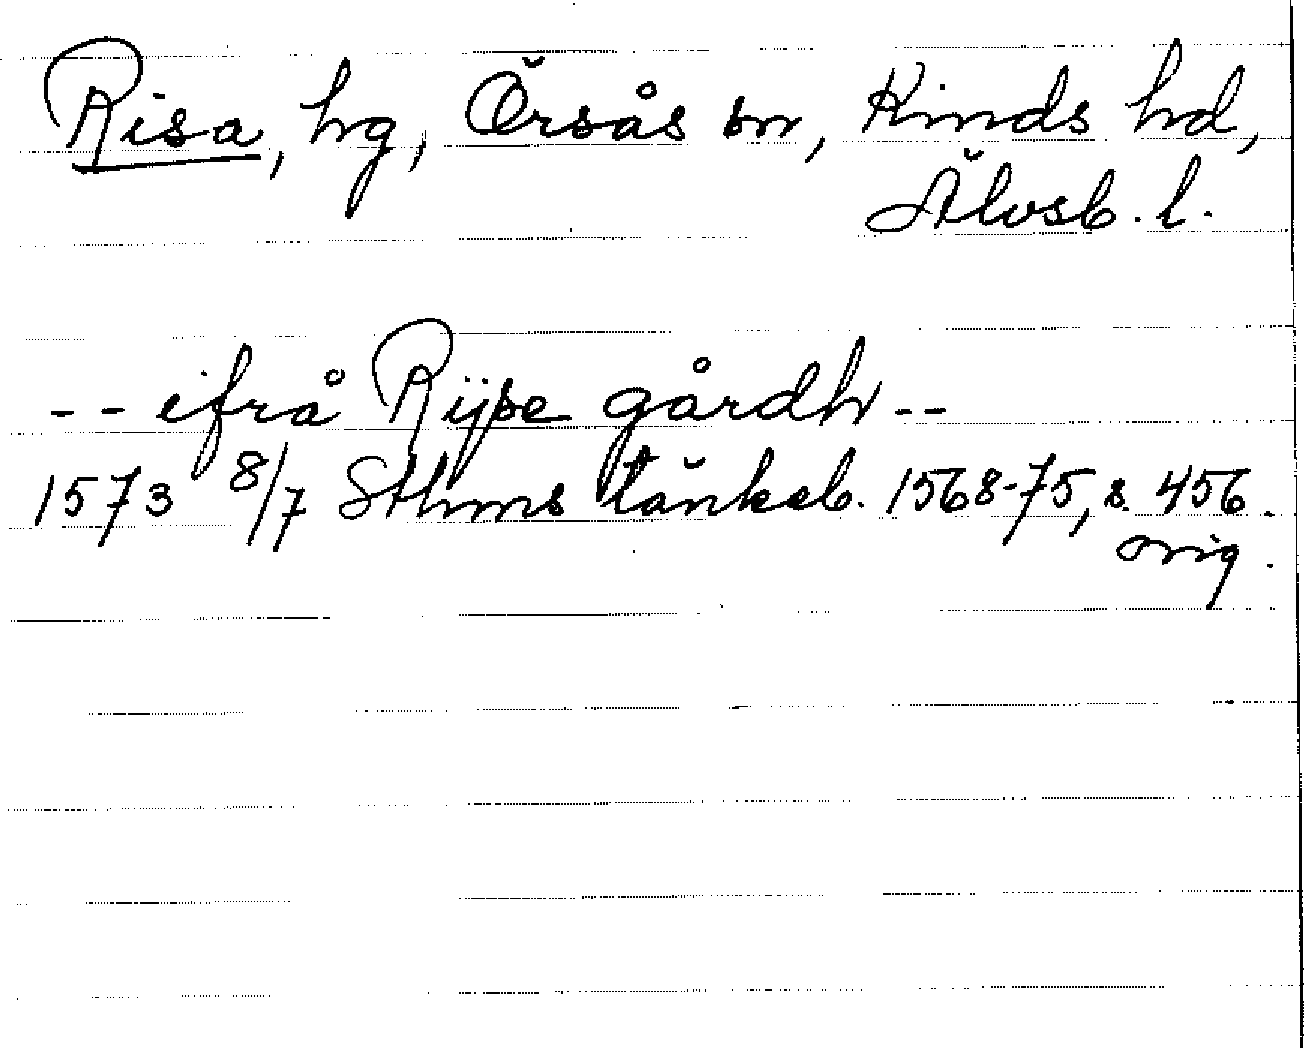 Risa, hg, Örsås sn, Kinds hd,
Älvsb. l.
-- ifrå Rijse gårdh --
1573 8/7 Sthms tänkeb. 1568-75, s. 456.
orig.